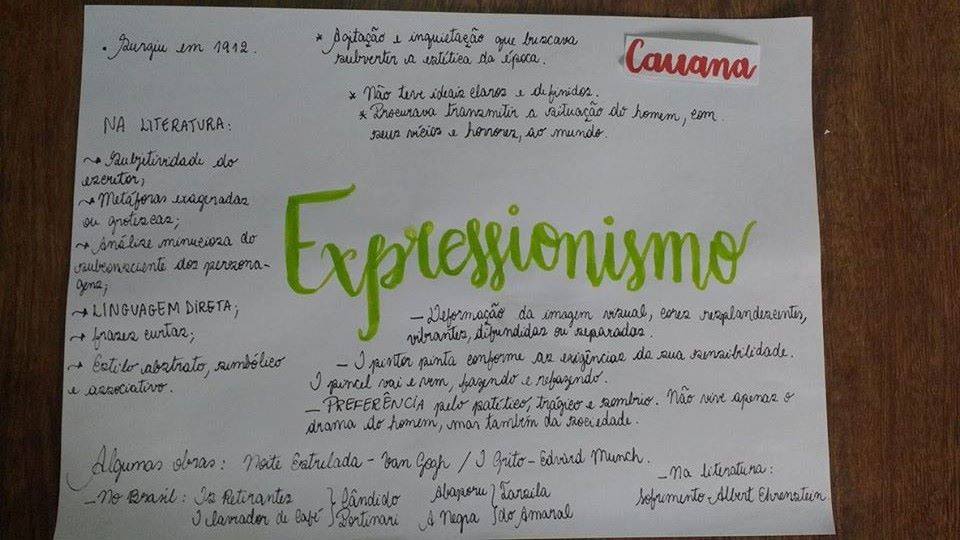 • Surgiu em 1912.
* Agitação e inquietação que buscava
subverter a estética da época.
Cauana
* Não teve ideais claros e definidos.
* Procurava transmitir a situação do homem, com
seus vícios e horrores, ao mundo.
NA LITERATURA:
→ Subjetividade do
escritor;
→ Metáforas exageradas
ou grotescas;
→ Análise minuciosa do
subconsciente dos persona-
gens;
→ LINGUAGEM DIRETA;
→ frases curtas;
→ Estilo abstrato, simbólico
e associativo.
Expressionismo
— Deformação da imagem visual, cores resplandescentes,
vibrantes, difundidas ou separadas.
— O pintor pinta conforme as exigências da sua sensibilidade.
O pincel vai e vem, fazendo e refazendo.
— PREFERÊNCIA pelo patético, trágico e sombrio. Não vive apenas o
drama do homem, mas também da sociedade.
Algumas obras: Noite Estrelada - Van Gogh / O Grito - Edvard Munch.
— No Brasil: Os Retirantes } Cândido
O lavrador de Café } Portinari
Abaporu } Tarsila
A Negra } do Amaral
— Na literatura:
Sofrimento - Albert Ehrenstein.